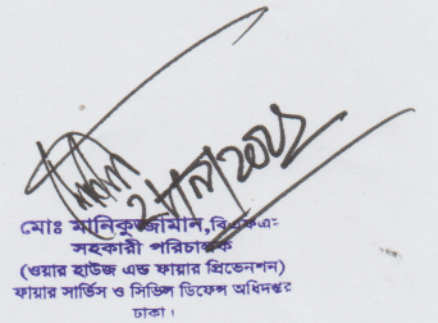 মোঃ মানিকুজ্জামান,
সহকারী পরিচালক
(ওয়ার হাউজ এন্ড ফায়ার প্রিভেনশন)
ফায়ার সার্ভিস ও সিভিল ডিফেন্স অধিদপ্তর
ঢাকা।